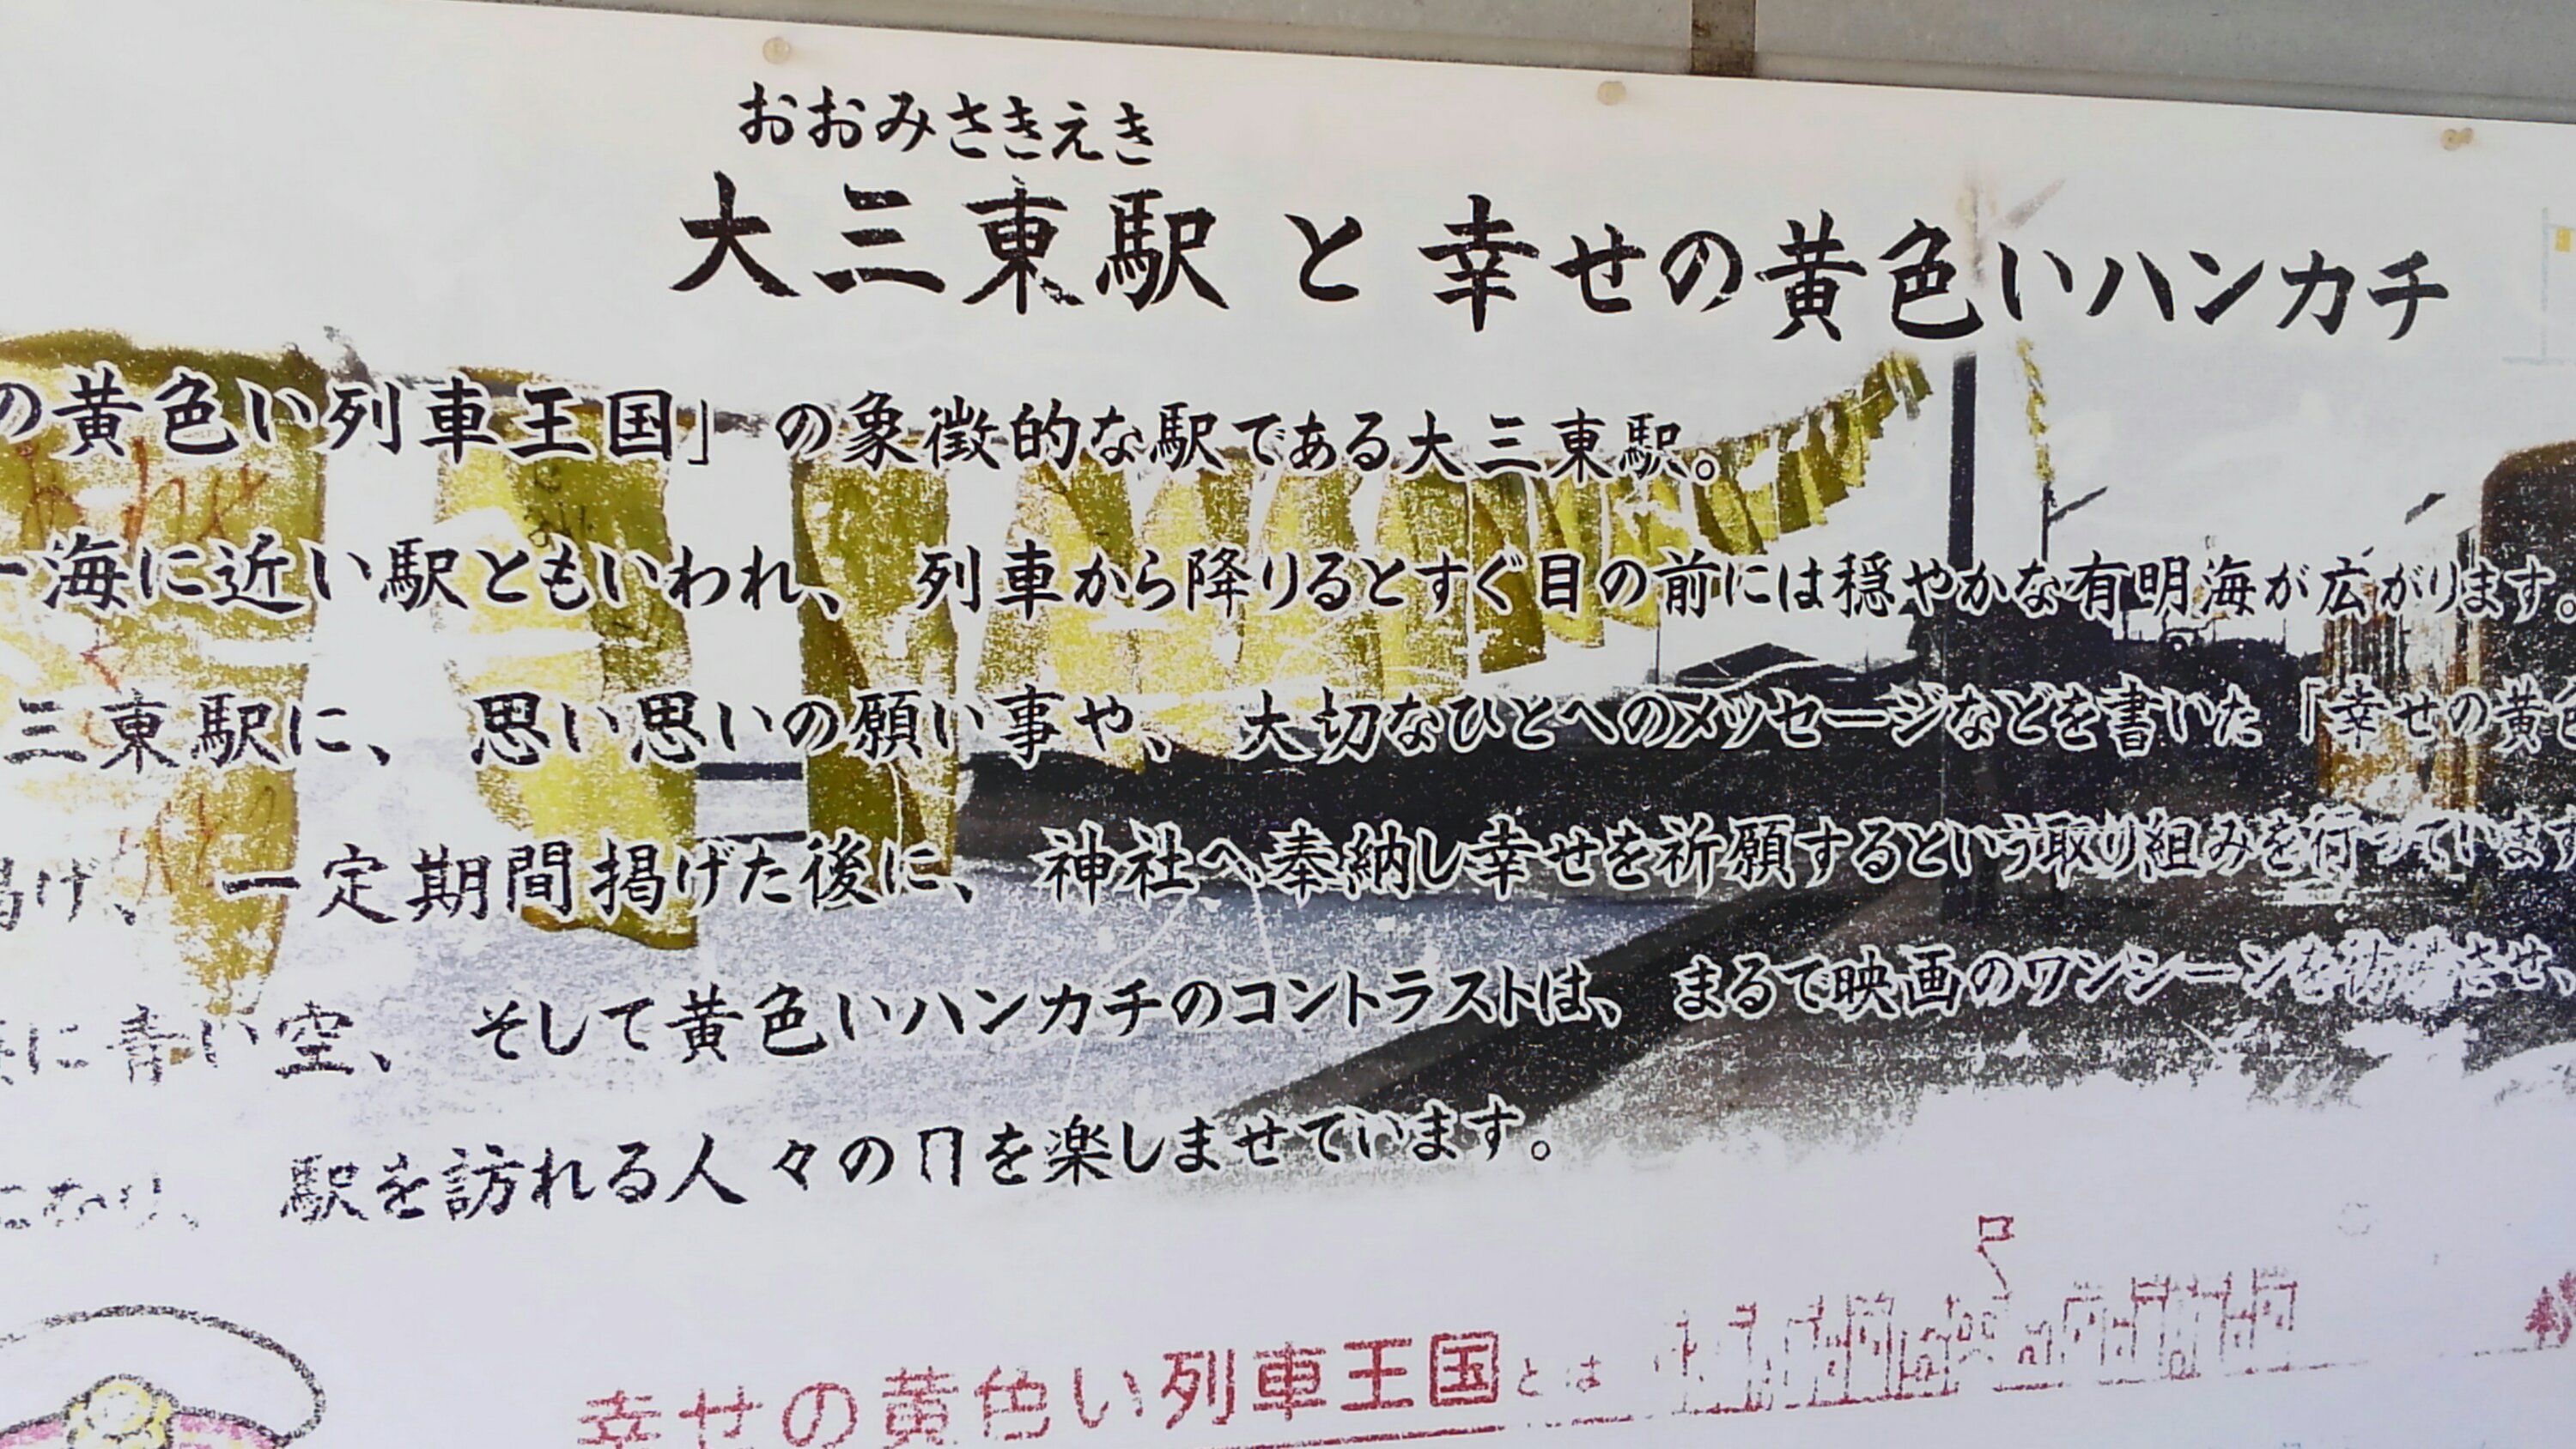 おおみさきえき
大三東駅 と 幸せの黄色いハンカチ
の黄色い列車王国」の象徴的な駅である大三東駅。
一海に近い駅ともいわれ、列車から降りるとすぐ目の前には穏やかな有明海が広がります。
三東駅に、思い思いの願い事や、大切なひとへのメッセージなどを書いた「幸せの黄色
掲げ、一定期間掲げた後に、神社へ奉納し幸せを祈願するという取り組みを行っています
に青い空、そして黄色いハンカチのコントラストは、まるで映画のワンシーンを させ、
駅を訪れる人々の を楽しませています。
幸せの黄色い列車王国とは